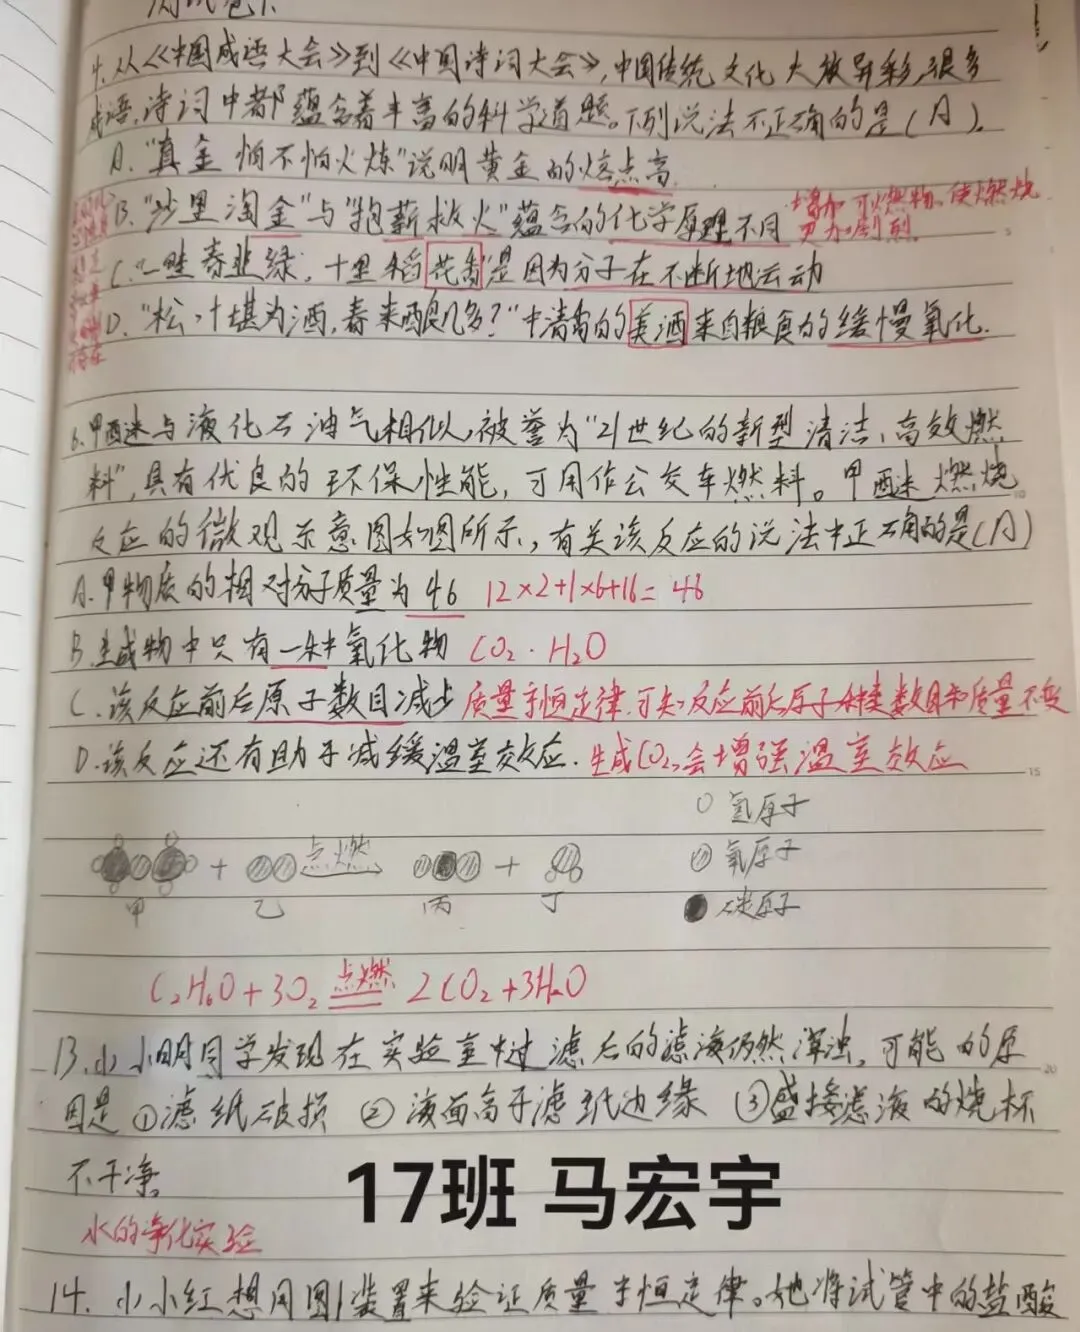 4.从《中国成语大会》到《中国诗词大会》,中国传统文化大放异彩,很多
成语,诗词中都蕴含着丰富的科学道题。下列说法不正确的是(A)。
A."真金怕不怕火炼"说明黄金的熔点高
B."沙里淘金"与"抱薪救火"蕴含的化学原理不同
增加可燃物,使燃烧
更加剧烈
C."一畦春韭绿,十里稻花香"是因为分子在不断地运动
D."松汁堪为酒,春来酿几多?"中清香的美酒来自粮食的缓慢氧化.
6.甲醚与液化石油气相似,被誉为"21世纪的新型清洁、高效燃
料",具有优良的环保性能,可用作公交车燃料。甲醚燃烧
反应的微观示意图如图所示,有关该反应的说法中正确的是(A)
A.甲物质的相对分子质量为46 12×2+1×6+16=46
B.生成物中只有一种氧化物 CO₂·H₂O
C.该反应前后原子数目减少 质量守恒定律,可知反应前后原子种类数目和质量不变
D.该反应还有助于减缓温室效应. 生成CO₂,会增强温室效应
氢原子
+ 点燃 + 氧原子
甲 乙 丙 丁 碳原子
C₂H₆O+3O₂ 点燃 2CO₂+3H₂O
13.小小明同学发现在实验室中过滤后的滤液仍然浑浊,可能的原
因是①滤纸破损 ②液面高于滤纸边缘 ③盛接滤液的烧杯
不干净。
17班 马宏宇
水的净化实验
14.小小红想用图1装置来验证质量守恒定律。她将试管中的盐酸